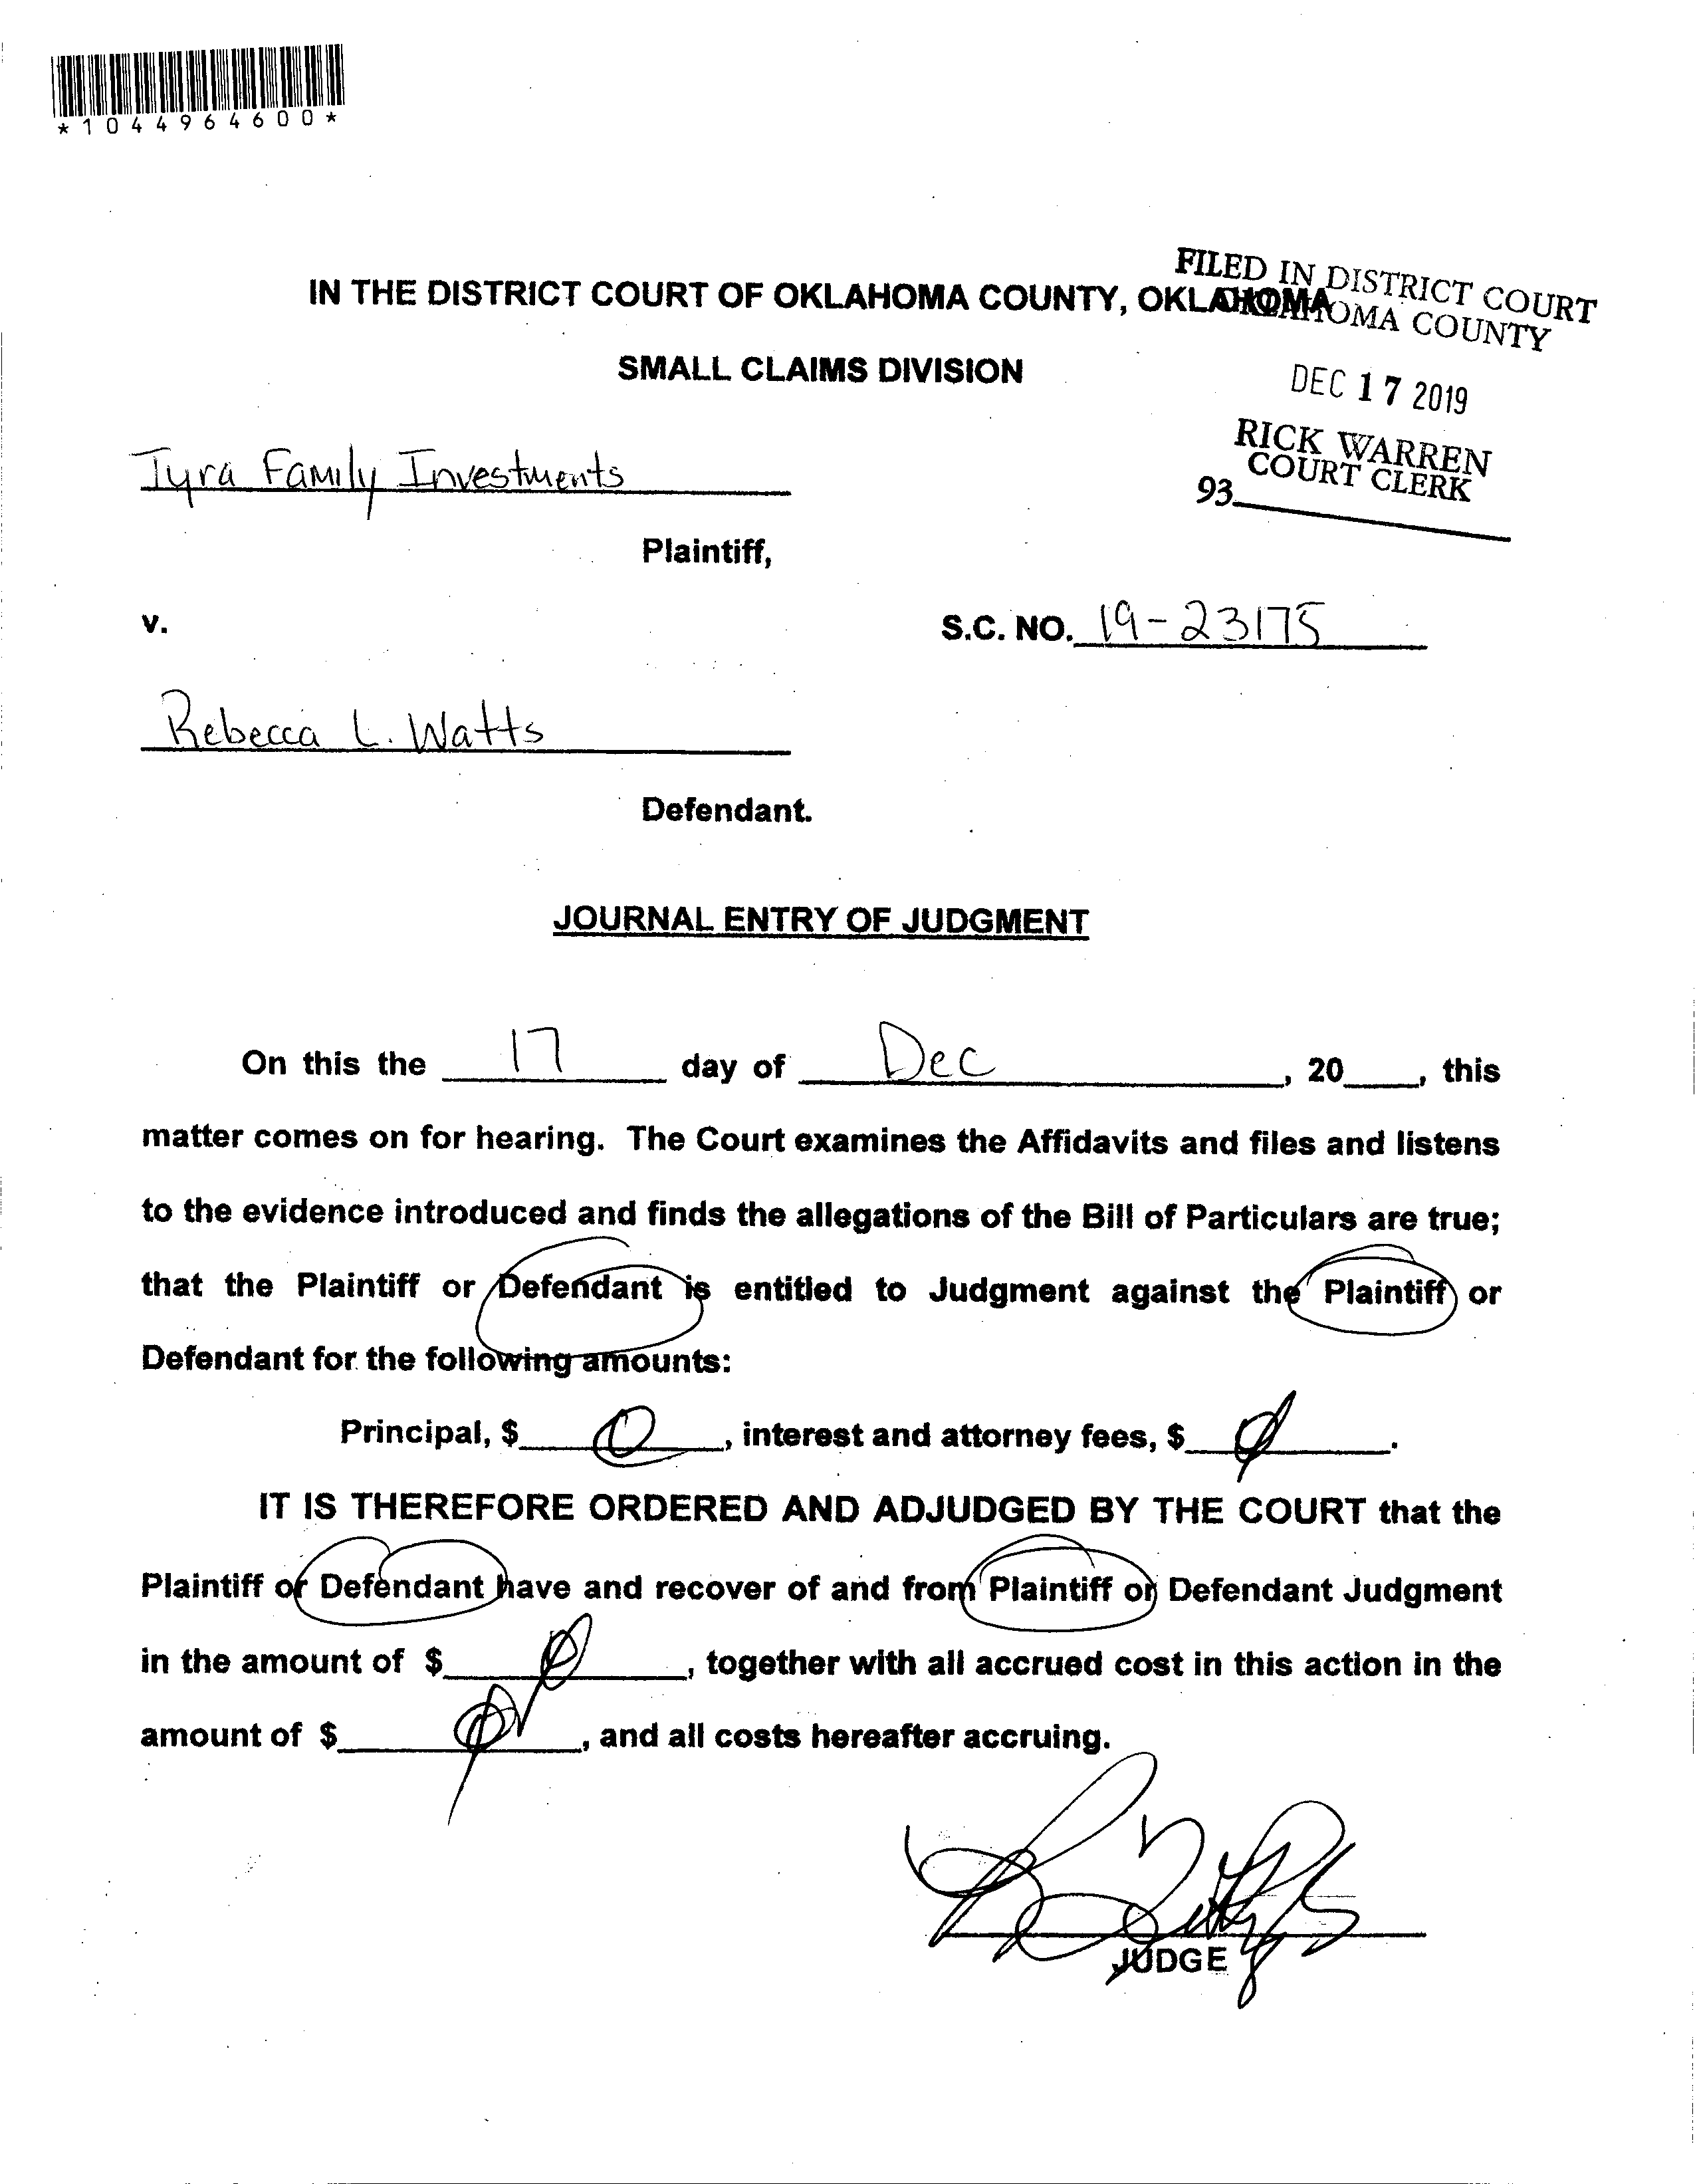 *1044964600*
FILED IN DISTRICT COURT
OKLAHOMA COUNTY
IN THE DISTRICT COURT OF OKLAHOMA COUNTY, OKLAHOMA
SMALL CLAIMS DIVISION
DEC 17 2019
RICK WARREN
COURT CLERK
93
Tyra Family Investments
Plaintiff,
v.
S.C. NO. 19-23175
Rebecca L. Watts
Defendant.
JOURNAL ENTRY OF JUDGMENT
On this the 17 day of Dec, 20____, this
matter comes on for hearing. The Court examines the Affidavits and files and listens
to the evidence introduced and finds the allegations of the Bill of Particulars are true;
that the Plaintiff or Defendant is entitled to Judgment against the Plaintiff or
Defendant for the following amounts:
Principal, $ 0, interest and attorney fees, $ 0.
IT IS THEREFORE ORDERED AND ADJUDGED BY THE COURT that the
Plaintiff or Defendant have and recover of and from Plaintiff or Defendant Judgment
in the amount of $ 0, together with all accrued cost in this action in the
amount of $ 0, and all costs hereafter accruing.
JUDGE